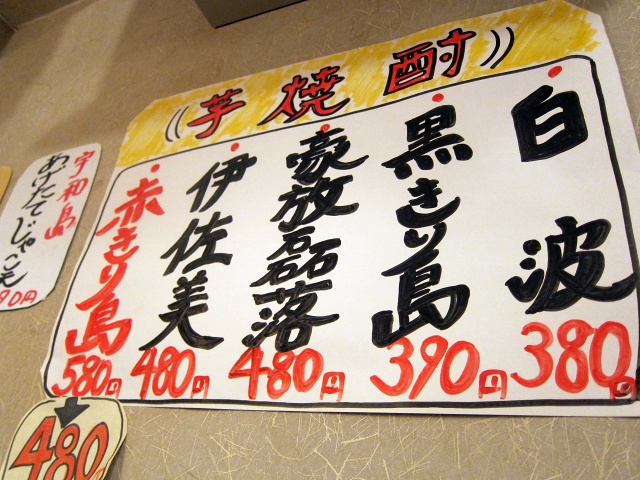 芋焼酎
白波
380円
黒きり島
390円
豪放磊落
480円
伊佐美
480円
赤きり島
580円
480
宇和島
あげたてじゃこ天
90円